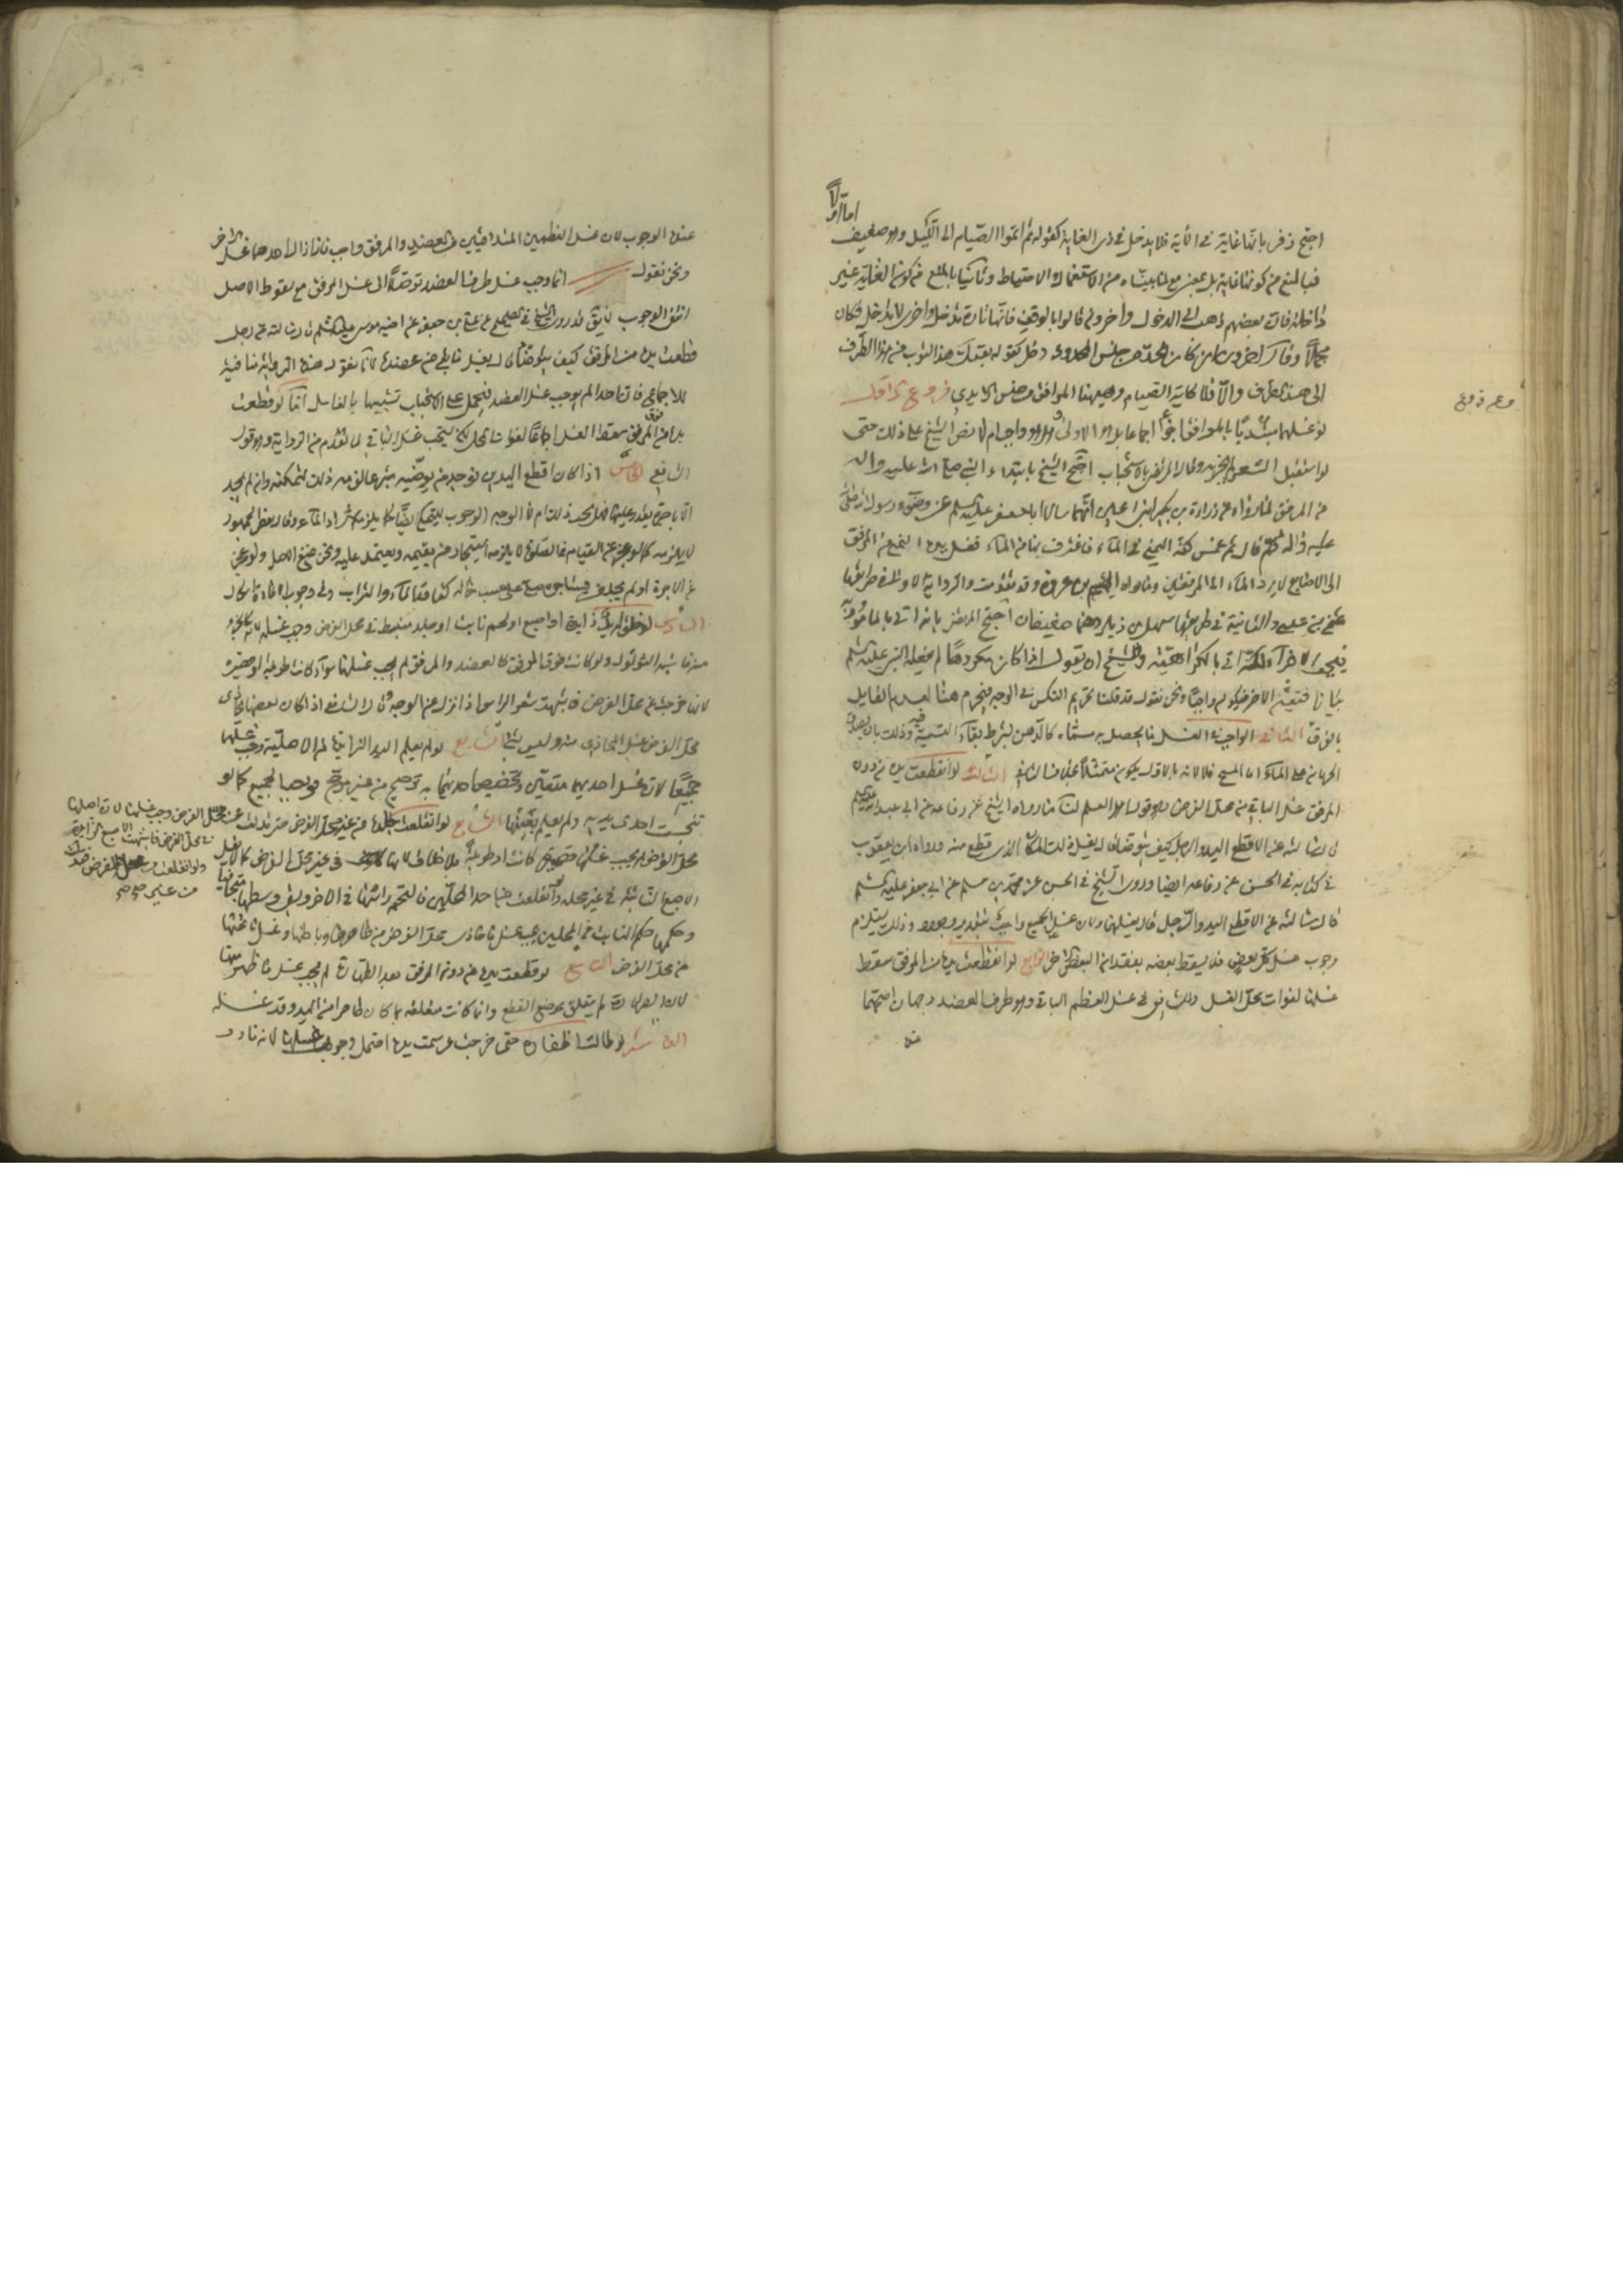 اما اولا
احتج زفر بانها غاية في الآية فلا يدخل في ذي الغاية كقوله ثم اتموا الصيام الى الليل وهو ضعيف
فبالمنع من كونها غاية بل بمعنى مع لما بيناه من الاستعمال والاحتياط وثانيا بالمنع من كون الغاية غير
داخلة فان بعضهم ذهب الى الدخول واخرون قالوا بالوقف فانها تارة تدخل واخرى لا تدخل فكان
مجملا وقال اخرون ان كان الحد من جنس المحدود دخل كقوله بعتك هذا الثوب من هذا الطرف
الى هذا الطرف والا فلا كآية الصيام وههنا المرافق من جنس الايدي فروع الاول
لو غسلها مبتدئا بالمرافق اجزأ اجماعا بل هو الاولى وهل هو واجب ام لا نص الشيخ على ذلك حتى
لو استقبل الشعر لم يجزه وقال المرتضى بالاستحباب احتج الشيخ بابتداء النبي صلى الله عليه واله
من المرفق لما رواه عن زرارة بن بكير ابني اعين انهما سالا ابا جعفر عليه السلم عن وضوء رسول الله صلى
عليه واله ثم قال ثم غمس كفه اليمنى في الماء فاغترف بها من الماء فغسل يده اليمنى من المرفق
الى الاصابع لا يرد الماء الى المرفقين وما رواه الهيثم بن عروة وقد تقدمت والرواية الاولى في طريقها
عثمان بن عيسى والثانية في طريقها سهل بن زياد وهما ضعيفان احتج المرتضى بانه اتى بالمأمور به
فيجب الاجزاء لكنه اتى بالمكروه وللشيخ ان يقول اذا كان مكروها لم يفعله النبي عليه السلم
بيانا فتعين الاخر فيكون واجبا ونحن نقول قد قلنا بتحريم النكس في الوجه فيحرم هنا لعدم القايل
بالفرق الثاني الواجب في الغسل ما يحصل به مسماه كالدهن بشرط بقاء التسمية فيه وذلك بان يصدق
الجريان على الماء اما المسح فلا لانه بالاول يكون ممتثلا بخلاف الثاني الثالث لو انقطعت يده من دون
المرفق غسل الباقي من محل الفرض وهو قول اهل العلم لنا ما رواه الشيخ عن رفاعة عن ابي عبد الله عليه السلم
قال سالته عن الاقطع اليد والرجل كيف يتوضا قال يغسل ذلك المكان الذي قطع منه ورواه ابن يعقوب
في كتابه في الحسن عن رفاعة ايضا وروى الشيخ في الحسن عن محمد بن مسلم عن ابي جعفر عليه السلم
قال سالته عن الاقطع اليد والرجل قال يغسلهما ولان غسل الجميع واجب بتقدير وجوده وذلك يستلزم
وجوب غسل كل بعض فلا يسقط بعضه بفقدان البعض الاخر الرابع لو انقطعت يده من المرفق سقط
غسلها لفوات محل الغسل وللشافعي في غسل العظم الباقي وهو طرف العضد وجهان اصحهما
عنده
فروع
عنده الوجوب لان غسل العظمين المتلاقيين من العضد والمرفق واجب فاذا زال احدهما غسل الاخر
ونحن نقول انما وجب غسل طرف العضد توصلا الى غسل المرفق مع سقوط الاصل
انتفى الوجوب لا يقال قد روى الشيخ في الصحيح عن علي بن جعفر عن اخيه موسى عليه السلم قال سالته عن رجل
قطعت يده من المرفق كيف يتوضا قال يغسل ما بقى من عضده لانا نقول هذه الرواية منافية
للاجماع فان احدا لم يوجب غسل العضد فيحمل على الاستحباب تشبيها بالغاسل اما لو قطعت
يده من فوق المرفق سقط الغسل اجماعا لفوات المحل لكن يستحب غسل الباقي لما تقدم من الرواية وهو قول
الشافعي الخامس اذا كان اقطع اليدين فوجد من يوضيه متبرعا لزمه ذلك لتمكنه وان لم يجد
الا باجرة يقدر عليها فهل يجب ذلك ام لا الوجه الوجوب للتمكن ايضا كما يلزمه شراء الماء وقال بعض الجمهور
لا يلزمه كما لو عجز عن القيام في الصلوة لا يلزمه استيجار من يقيمه ويعتمد عليه ونحن نمنع الاصل ولو عجز
عن الاجرة او لم يجد من يستاجره صلى على حسب حاله كفاقد الماء والتراب وفي وجوب الاعادة اشكال
السادس لو خلق له يد زايدة او اصبع او لحم نابت او جلد منبسط في محل الفرض وجب غسله لانه كالجزء
منه فاشبه الثؤلول ولو كانت فوق المرفق كالعضد والمرفق لم يجب غسلها سواء كانت طويلة او قصيرة
لانها خرجت عن محل الفرض فاشبهت شعر الراس اذا نزل عن الوجه وقال الشافعي اذا كان بعضها يحاذي
محل الفرض غسل المحاذي منه وليس بشيء السابع لو لم يعلم اليد الزايدة من الاصلية وجب غسلهما
جميعا لان غسل احديهما متعين وتخصيص احديهما به ترجيح من غير مرجح فوجب الجميع كما لو
تنجست احدى يديه ولم يعلم بعينها الثامن لو انقلعت جلدة من غير محل الفرض حتى تدلت من محل الفرض وجب غسلها لان اصلها
في محل الفرض فاشبهت الاصبع الزايدة
ولو انقلعت من محل الفرض فتدلت
من غير صح صح
محل الفرض لم يجب غسلها قصيرة كانت او طويلة بلا خلاف لانها في غير محل الفرض كما لا يغسل
الاصبع النابتة في غير محله ولو انقلعت من احد المحلين فالتحم راسها في الاخر وبقى وسطها متجافيا
وحكمها حكم النابت في المحلين يجب غسل ما حاذى محل الفرض من ظاهرها وباطنها وغسل ما تحتها
من محل الفرض التاسع لو قطعت يده من دون المرفق بعد الطهارة لم يجب غسل ما ظهر منها
لان الطهارة لم يتعلق بموضع القطع وانما كانت متعلقة بما كان ظاهرا من اليد وقد غسله
العاشر لو طالت اظفاره حتى خرجت عن سمت يده احتمل وجوب غسلها لانه نادر